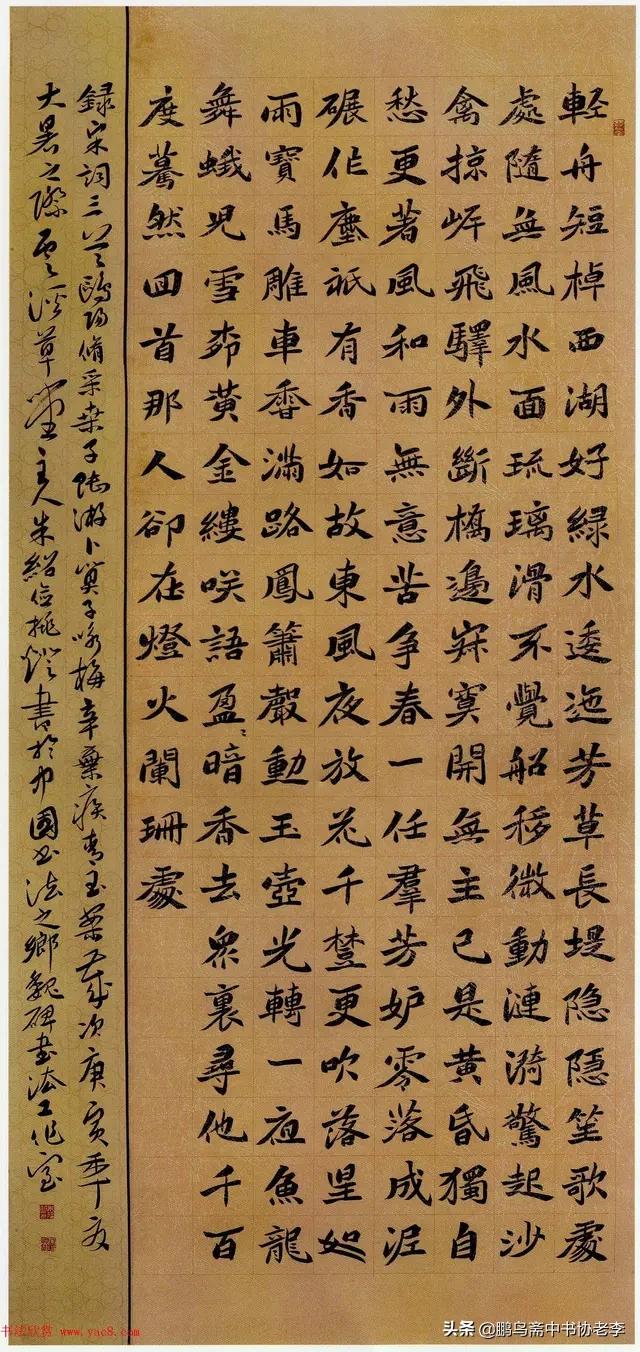 輕舟短棹西湖好綠水逶迤芳草長堤隐隱笙歌處
處隨無風水面琉璃滑不覺船移微動漣漪驚起沙
禽掠岸飛驛外斷橋邊寂寞開無主已是黃昏獨自
愁更著風和雨無意苦爭春一任羣芳妒零落成泥
碾作塵祇有香如故東風夜放花千樹更吹落星如
雨寶馬雕車香滿路鳳簫聲動玉壺光轉一夜魚龍
舞蛾兒雪柳黃金縷笑語盈〻暗香去衆裏尋他千百
度驀然回首那人卻在燈火闌珊處
録宋詞三首歐陽脩采桑子陸游卜算子咏梅辛棄疾青玉案歲次庚寅年夏
大暑之際雲溪草堂主人朱紹信挑燈書於中國書法之鄉魏碑書法工作室
书法欣赏 www.yac8.com
头条 @鹏鸟斋中书协老李